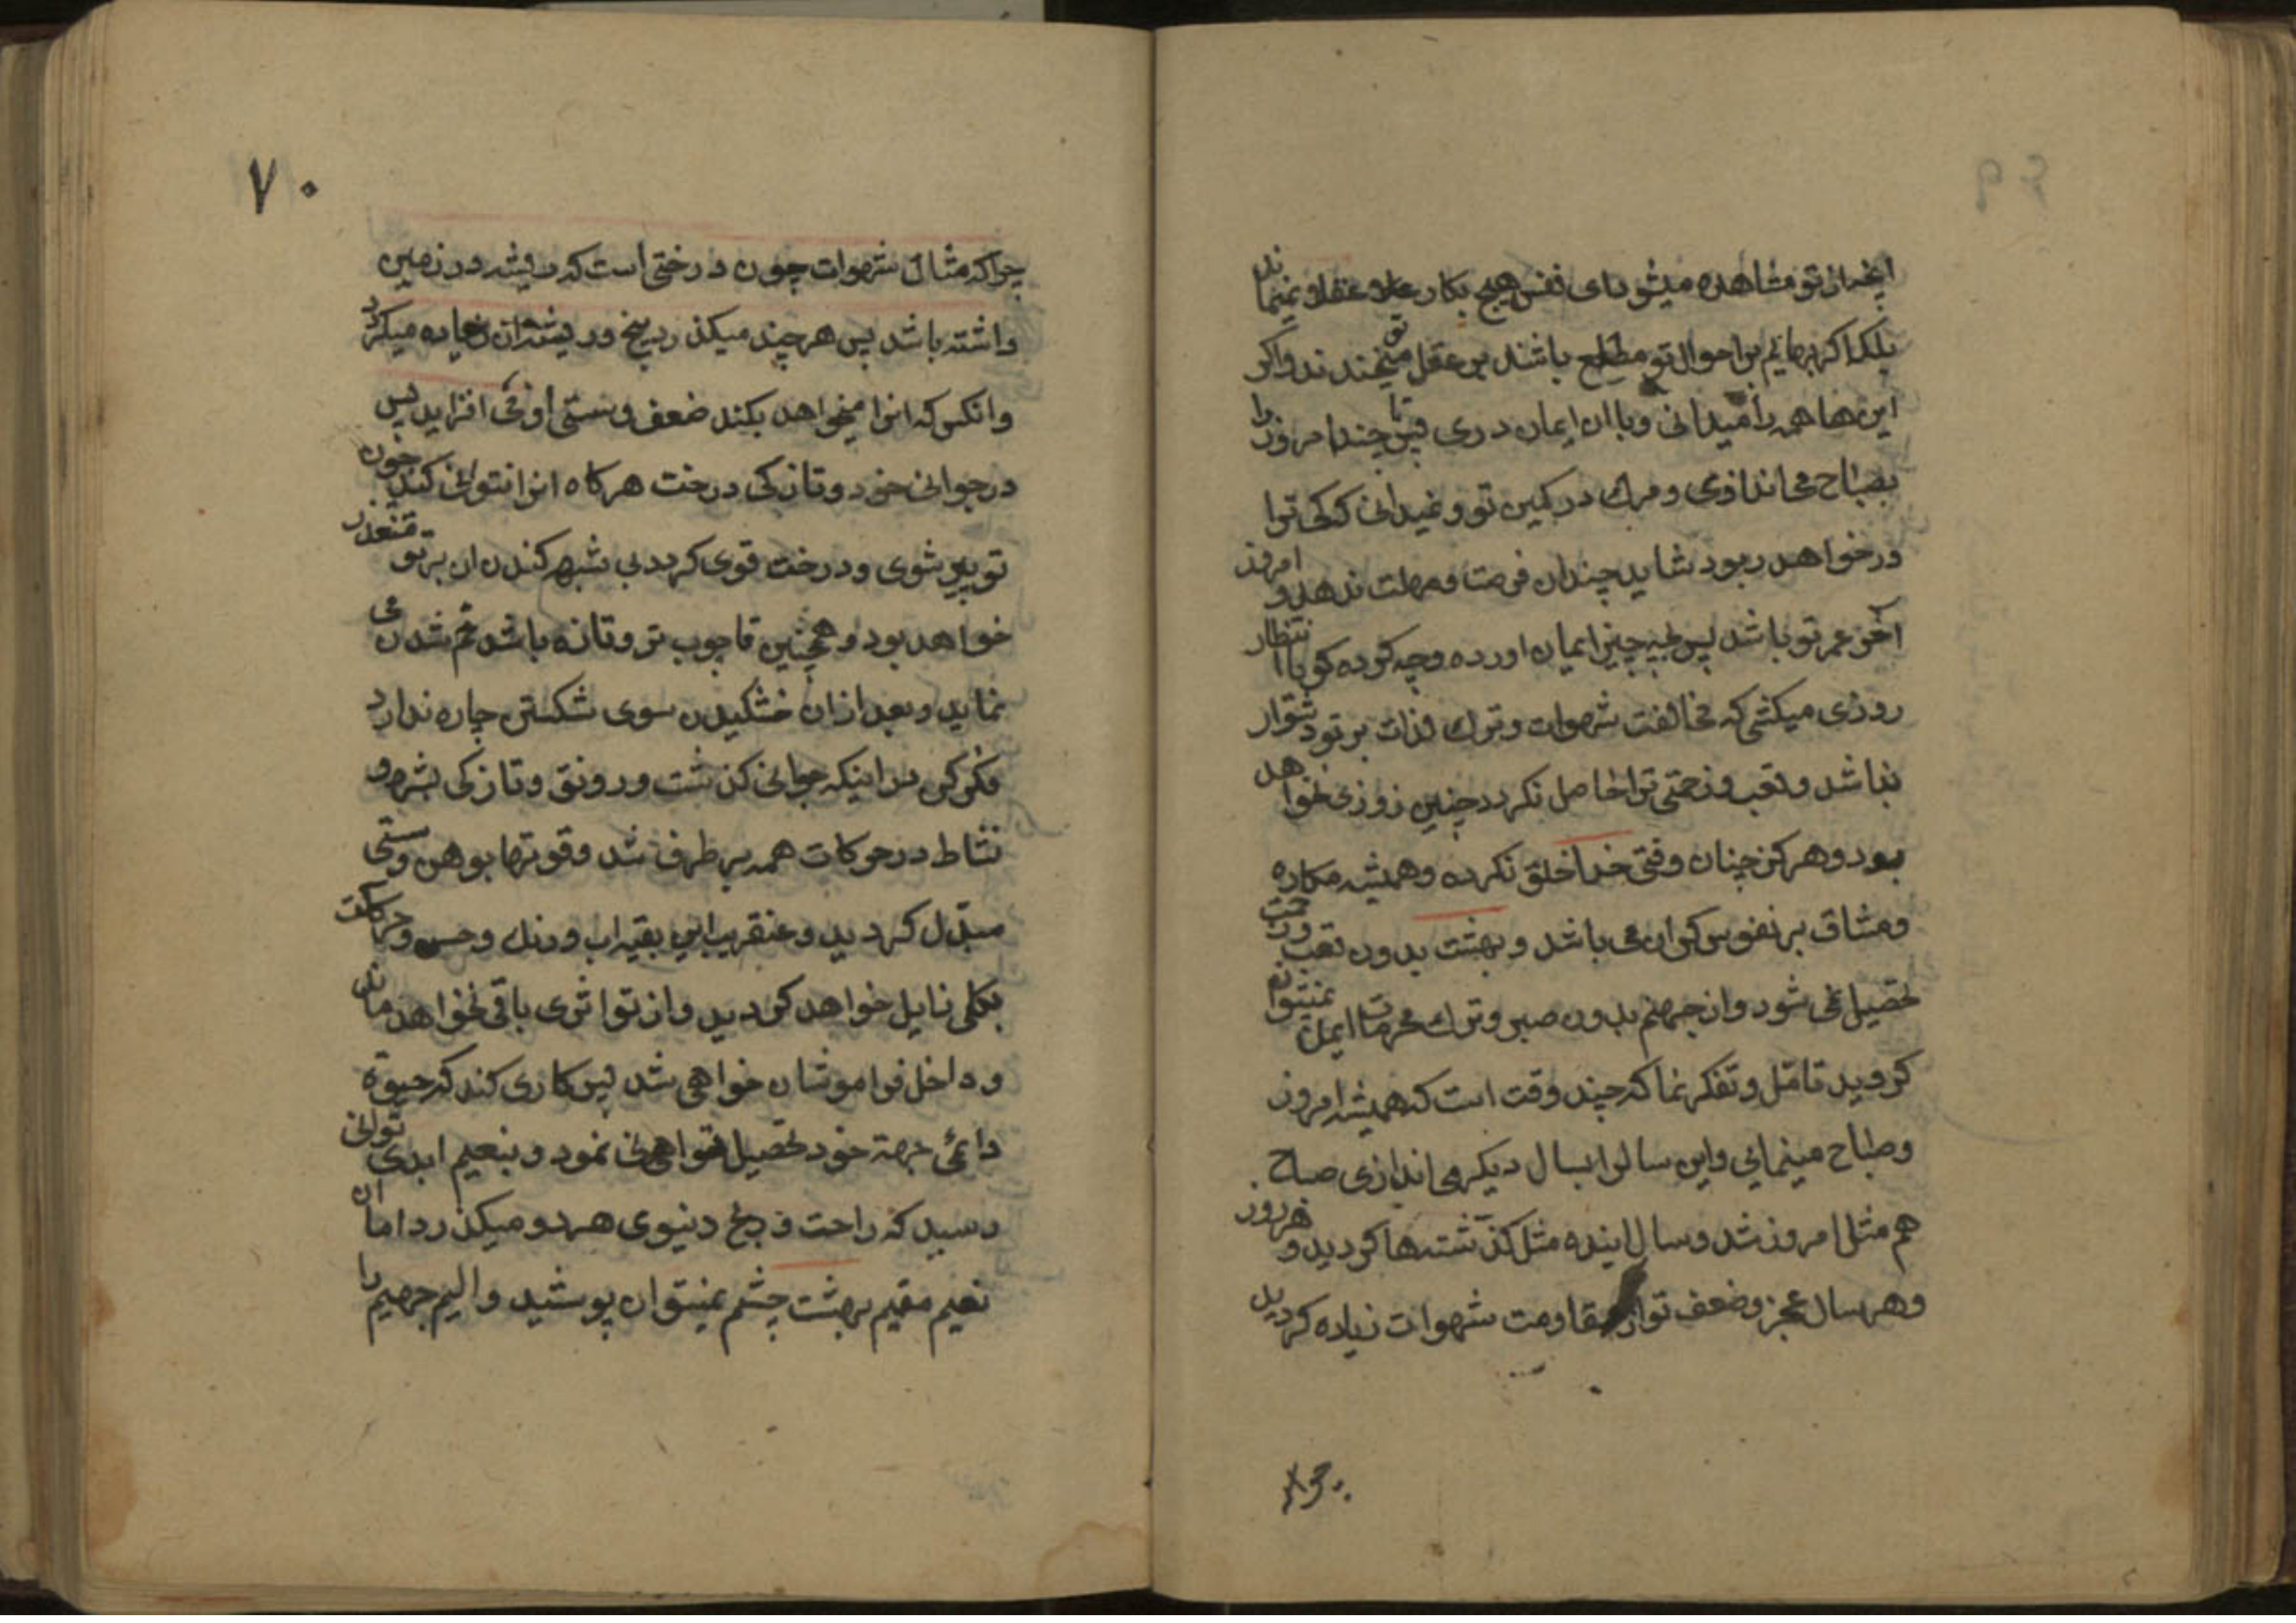 انچه از تو مشاهده میشود ای نفس هیچ بکار عقلا نمیماند
بلکه اکر بهائم بر احوال تو مطلع باشند بر عقل تو میخندند و اکر
این ها همه را میدانی و باان ایمان دری پس تا چند امروز را
بصباح می اندازی و مرك در کمین تو و نمیدانی که کی ترا
در خواهد ربود شاید چندان فرصت و مهلت ندهد و امروز
آخر عمر تو باشد پس بچه چیز ایمان اورده و چه کرده کویا انتظار
روزی میکشی که مخالفت شهوات و ترك لذات بر تو دشوار
نباشد و تعب و زحمتی ترا حاصل نکردد چنین روزی نخواهد
بود و هرکز چنان وقتی خدا خلق نکرده و همیشه مکاره
و مشاق بر نفوس کران می باشد و بهشت بدون تعب و زحمت
تحصیل نمی شود و از جهنم بدون صبر و ترك محرمات ایمن نمیتوان
کردید تامّل و تفکر نما که چند وقت است که همیشه امروز
و صباح مینمایی و این سال را بسال دیکر می اندازی صباح
هم مثل امروز شد و سال اینده مثل کذشته ها کردید و هر روز
و هر سال عجز و ضعف تو از مقاومت شهوات زیاده کردید
چراکه
۷۰
چراکه مثال شهوات چون درختی است که ریشه در زمین
داشته باشد پس هر چند میکذرد بیخ و ریشه ان زیاده میکردد
و انکس که انرا میخواهد بکند ضعف و سستی او می افزاید پس
در جوانی خود و تازکی درخت هرکاه انرا نتوانی کند چون
تو پیر شوی و درخت قوی کردد بی شبهه کندن ان بر تو متعذر
خواهد بود و همچنین تا چوب تر و تازه باشد خم شدن می
نماید و بعد از ان خشکیدن سوی شکستن چاره ندارد
فکر کن در اینکه جوانی کذشت و رونق و تازکی بشره و
نشاط در حرکات همه بر طرف شد و قوتها بوهن و سستی
مبدّل کردید و عنقریب این بقیه اب و رنك و حس و حرکت
بکلی زایل خواهد کردید و از تو اثری باقی نخواهد ماند
و داخل فراموشان خواهی شد پس کاری کند که حیوة
دائمی جهة خود تحصیل خواهی نمود و بنعیم ابدی توانی
رسید که راحت و رنج دنیوی هر دو میکذرد اما از ان
نعیم مقیم بهشت چشم نمیتوان پوشید و الیم جهیم را